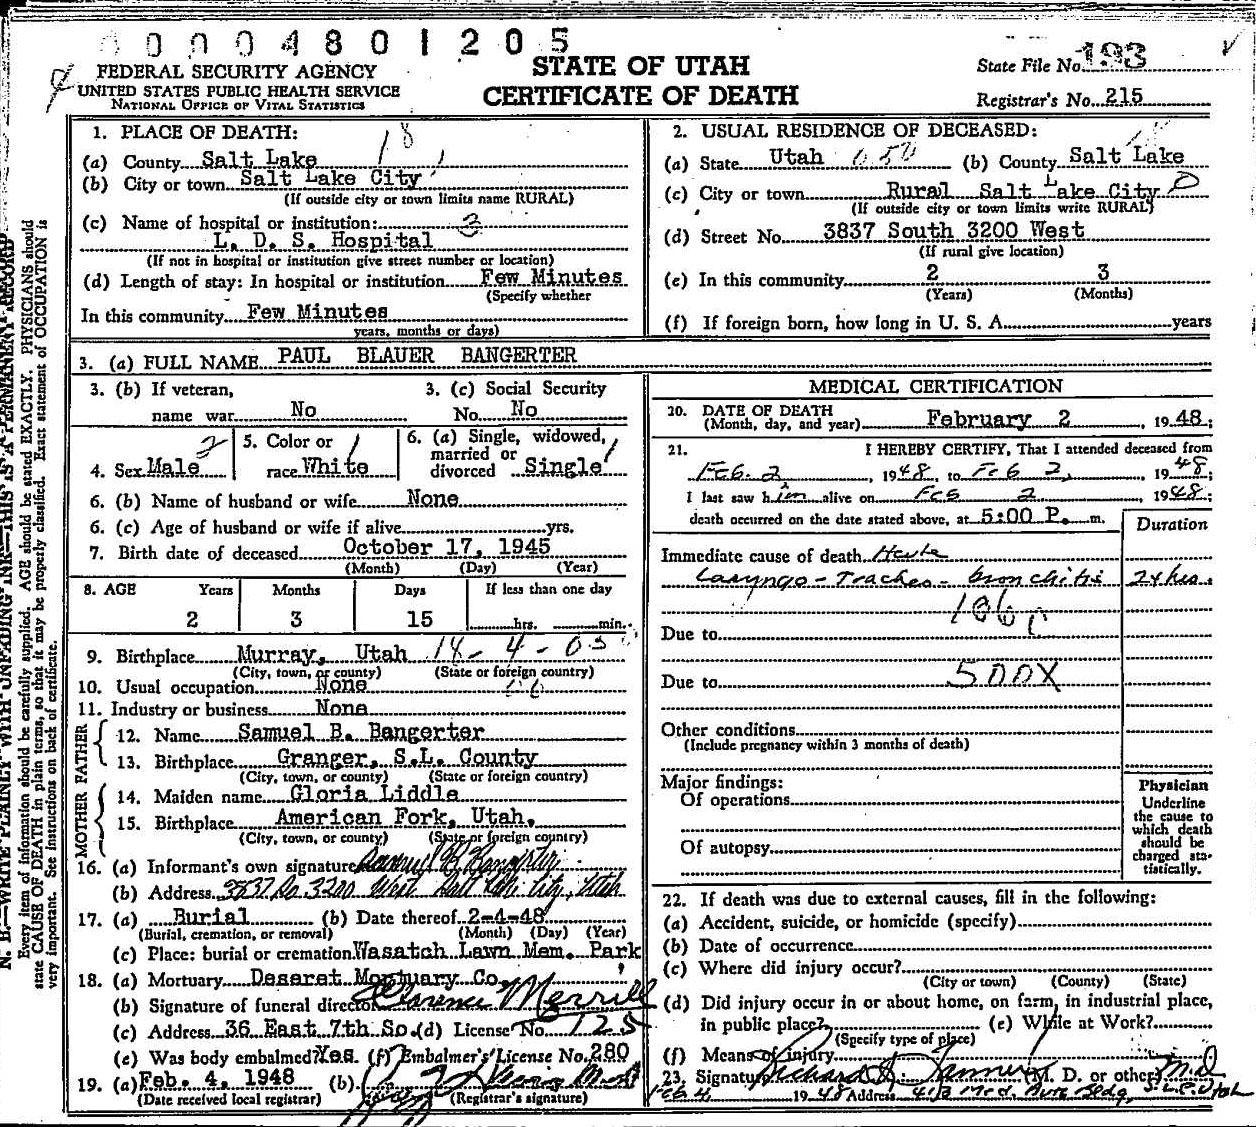 0 0 0 4 8 0 1 2 0 5
FEDERAL SECURITY AGENCY
UNITED STATES PUBLIC HEALTH SERVICE
NATIONAL OFFICE OF VITAL STATISTICS
STATE OF UTAH
CERTIFICATE OF DEATH
State File No. 193
Registrar's No. 215
1. PLACE OF DEATH:
18
(a) County Salt Lake
(b) City or town Salt Lake City
(If outside city or town limits name RURAL)
(c) Name of hospital or institution: 3
L. D. S. Hospital
(If not in hospital or institution give street number or location)
(d) Length of stay: In hospital or institution Few Minutes
(Specify whether
In this community Few Minutes
years, months or days)
2. USUAL RESIDENCE OF DECEASED:
(a) State Utah (b) County Salt Lake
(c) City or town Rural Salt Lake City
(If outside city or town limits write RURAL)
(d) Street No. 3837 South 3200 West
(If rural give location)
(e) In this community 2 3
(Years) (Months)
(f) If foreign born, how long in U. S. A. years
3. (a) FULL NAME PAUL BLAUER BANGERTER
3. (b) If veteran,
name war No
3. (c) Social Security
No. No
4. Sex Male 2
5. Color or
race White
6. (a) Single, widowed,
married or
divorced Single
6. (b) Name of husband or wife None
6. (c) Age of husband or wife if alive yrs.
7. Birth date of deceased October 17, 1945
(Month) (Day) (Year)
8. AGE Years Months Days If less than one day
2 3 15 hrs. min.
9. Birthplace Murray, Utah 18-4-05
(City, town, or county) (State or foreign country)
10. Usual occupation None
11. Industry or business None
FATHER
12. Name Samuel B. Bangerter
13. Birthplace Granger, S.L. County
(City, town, or county) (State or foreign country)
MOTHER
14. Maiden name Gloria Liddle
15. Birthplace American Fork, Utah.
(City, town, or county) (State or foreign country)
16. (a) Informant's own signature Samuel B Bangerter
(b) Address 3837 So. 3200 West Salt Lake City, Utah
17. (a) Burial (b) Date thereof 2-4-48
(Burial, cremation, or removal) (Month) (Day) (Year)
(c) Place: burial or cremation Wasatch Lawn Mem. Park
18. (a) Mortuary Deseret Mortuary Co.
(b) Signature of funeral director Clarence Merrill
(c) Address 36 East 7th So. (d) License No. 125
(e) Was body embalmed? Yes. (f) Embalmer's License No. 280
19. (a) Feb. 4, 1948 (b)
(Date received local registrar) (Registrar's signature)
MEDICAL CERTIFICATION
20. DATE OF DEATH
(Month, day, and year) February 2, 1948;
21. I HEREBY CERTIFY, That I attended deceased from
Feb. 2, 1948, to Feb 2, 1948;
I last saw him alive on Feb 2, 1948;
death occurred on the date stated above, at 5:00 P. m.
Duration
Immediate cause of death Acute
Laryngo-Tracheo-bronchitis 24 hrs.
Due to
Due to 500X
Other conditions
(Include pregnancy within 3 months of death)
Major findings:
Of operations
Of autopsy
Physician
Underline
the cause to
which death
should be
charged sta-
tistically.
22. If death was due to external causes, fill in the following:
(a) Accident, suicide, or homicide (specify)
(b) Date of occurrence
(c) Where did injury occur?
(City or town) (County) (State)
(d) Did injury occur in or about home, on farm, in industrial place,
in public place? (e) While at Work?
(Specify type of place)
(f) Means of injury
23. Signature Richard (M. D. or other) M.D
Feb 4 1948 Address Bldg, S.L.C. Utah
N. B.—WRITE PLAINLY WITH UNFADING INK—THIS IS A PERMANENT RECORD
Every item of information should be carefully supplied. AGE should be stated EXACTLY. PHYSICIANS should
state CAUSE OF DEATH in plain terms, so that it may be properly classified. Exact statement of OCCUPATION is
very important. See instructions on back of certificate.